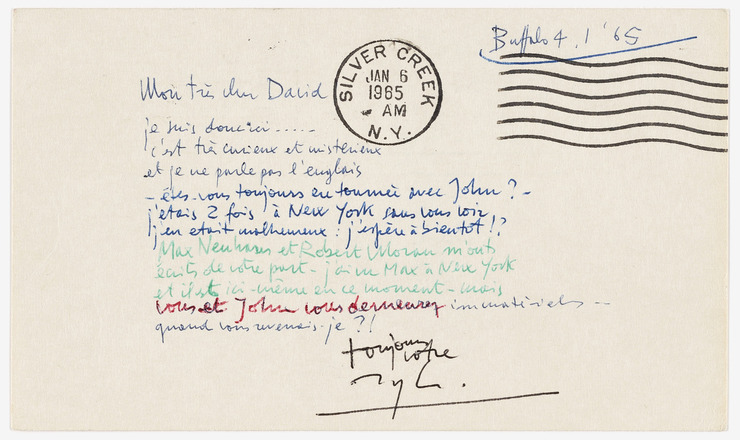 Buffalo 4.1 '65
SILVER CREEK
JAN 6
1965
AM
N.Y.
Mon très cher David
je suis donc ici .....
c'est très curieux et mistérieux
et je ne parle pas l'englais
– êtes-vous toujours en tournée avec John? –
j'étais 2 fois à New York sans vous voir
j'en était malheureux: j'espère à bientôt!?
Max Neuhaus et Robert Moran m'ont
écrits de votre part – j'ai vu Max à New York
et il est ici-même en ce moment – mais
vous et John vous demeurez immatériels –
quand vous revenais-je?!
toujours
votre